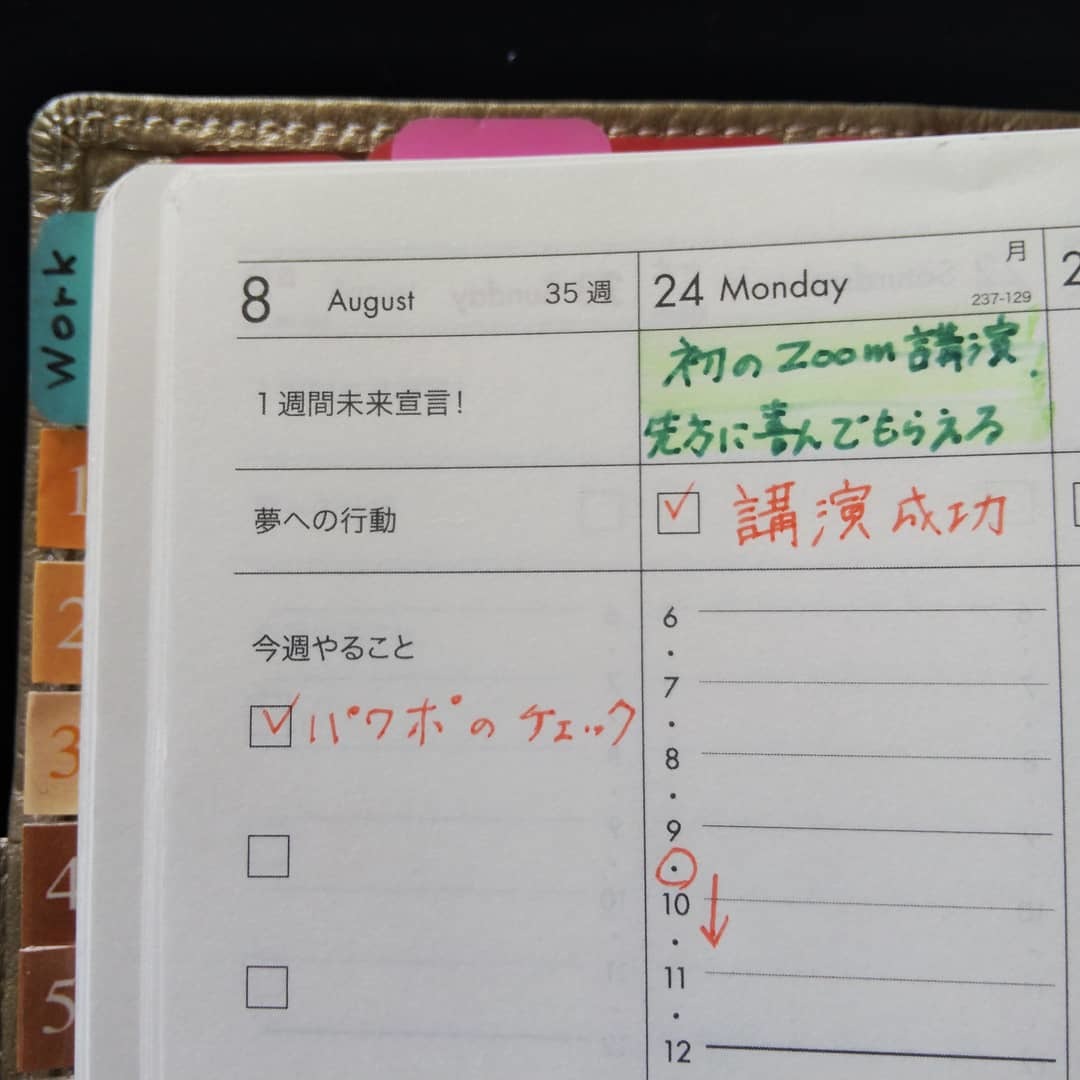 Work
1
2
3
4
5
8 August 35週
24 Monday 月
237-129
2
1週間未来宣言!
初のZoom講演!
先方に喜んでもらえる
夢への行動
講演成功
今週やること
パワポのチェック
6
7
8
9
10
11
12